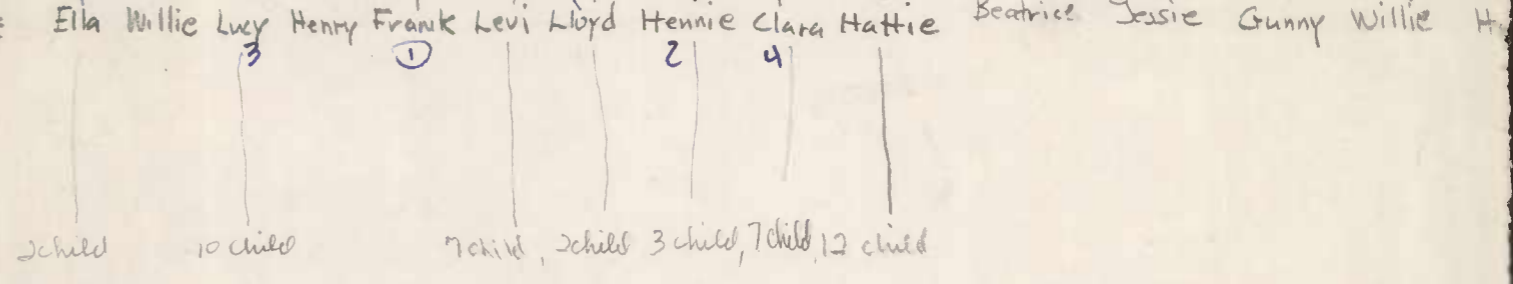 Ella Willie Lucy Henry Frank Levi Lloyd Hennie Clara Hattie Beatrice Jessie Gunny Willie
3 1 2 4
2child 10 child 7 child, 2child 3 child, 7 child, 12 child